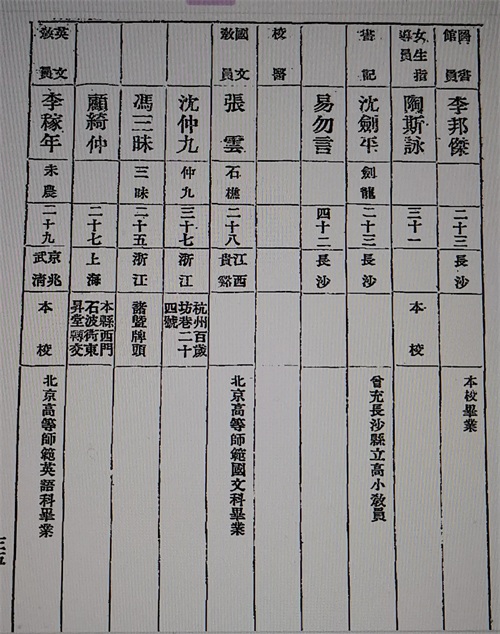 圖書館員 李邦傑 二十三 長沙 本校畢業
女生指導員 陶斯詠 三十一 本校
書記 沈劍平 劍龍 二十三 長沙 曾充長沙縣立高小教員
易勿言 四十二 長沙
校醫
國文教員 張雲 石樵 二十八 江西貴谿 北京高等師範國文科畢業
沈仲九 仲九 三十七 浙江 杭州百歲坊巷二十四號
馮三昧 三昧 二十五 浙江 諸暨牌頭
顧綺仲 二十七 上海 本縣西門石波街東昇堂轉交
英文教員 李稼年 未農 二十九 京兆武清 本校 北京高等師範英語科畢業